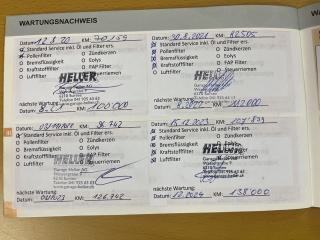 WARTUNGSNACHWEIS
Datum: 12.8.20 KM: 70159
Standard Service inkl. Öl und Filter ers.
Pollenfilter Zündkerzen
Bremsflüssigkeit Eolys
Kraftstofffilter FAP Filter
Luftfilter Steuerriemen
HELLER
nächste Wartung:
Datum: KM: 100'000
Datum: 30.8.2021 KM: 82505
Standard Service inkl. Öl und Filter ers.
Pollenfilter Zündkerzen
Bremsflüssigkeit Eolys
Kraftstofffilter FAP Filter
Luftfilter Steuerriemen
nächste Wartung:
Datum: 8.2022 KM: 112'000
Datum: KM: 96'742
Standard Service inkl. Öl und Filter ers.
Pollenfilter Zündkerzen
Bremsflüssigkeit Eolys
Kraftstofffilter FAP Filter
Luftfilter Steuerriemen
HELLER
Garage Heller AG
nächste Wartung:
Datum: KM: 126'742
Datum: 15.12.2023 KM: 107'803
Standard Service inkl. Öl und Filter ers.
Pollenfilter Zündkerzen
Bremsflüssigkeit Eolys
Kraftstofffilter FAP Filter
Luftfilter Steuerriemen
HELLER
nächste Wartung:
Datum: 12.2024 KM: 138'000